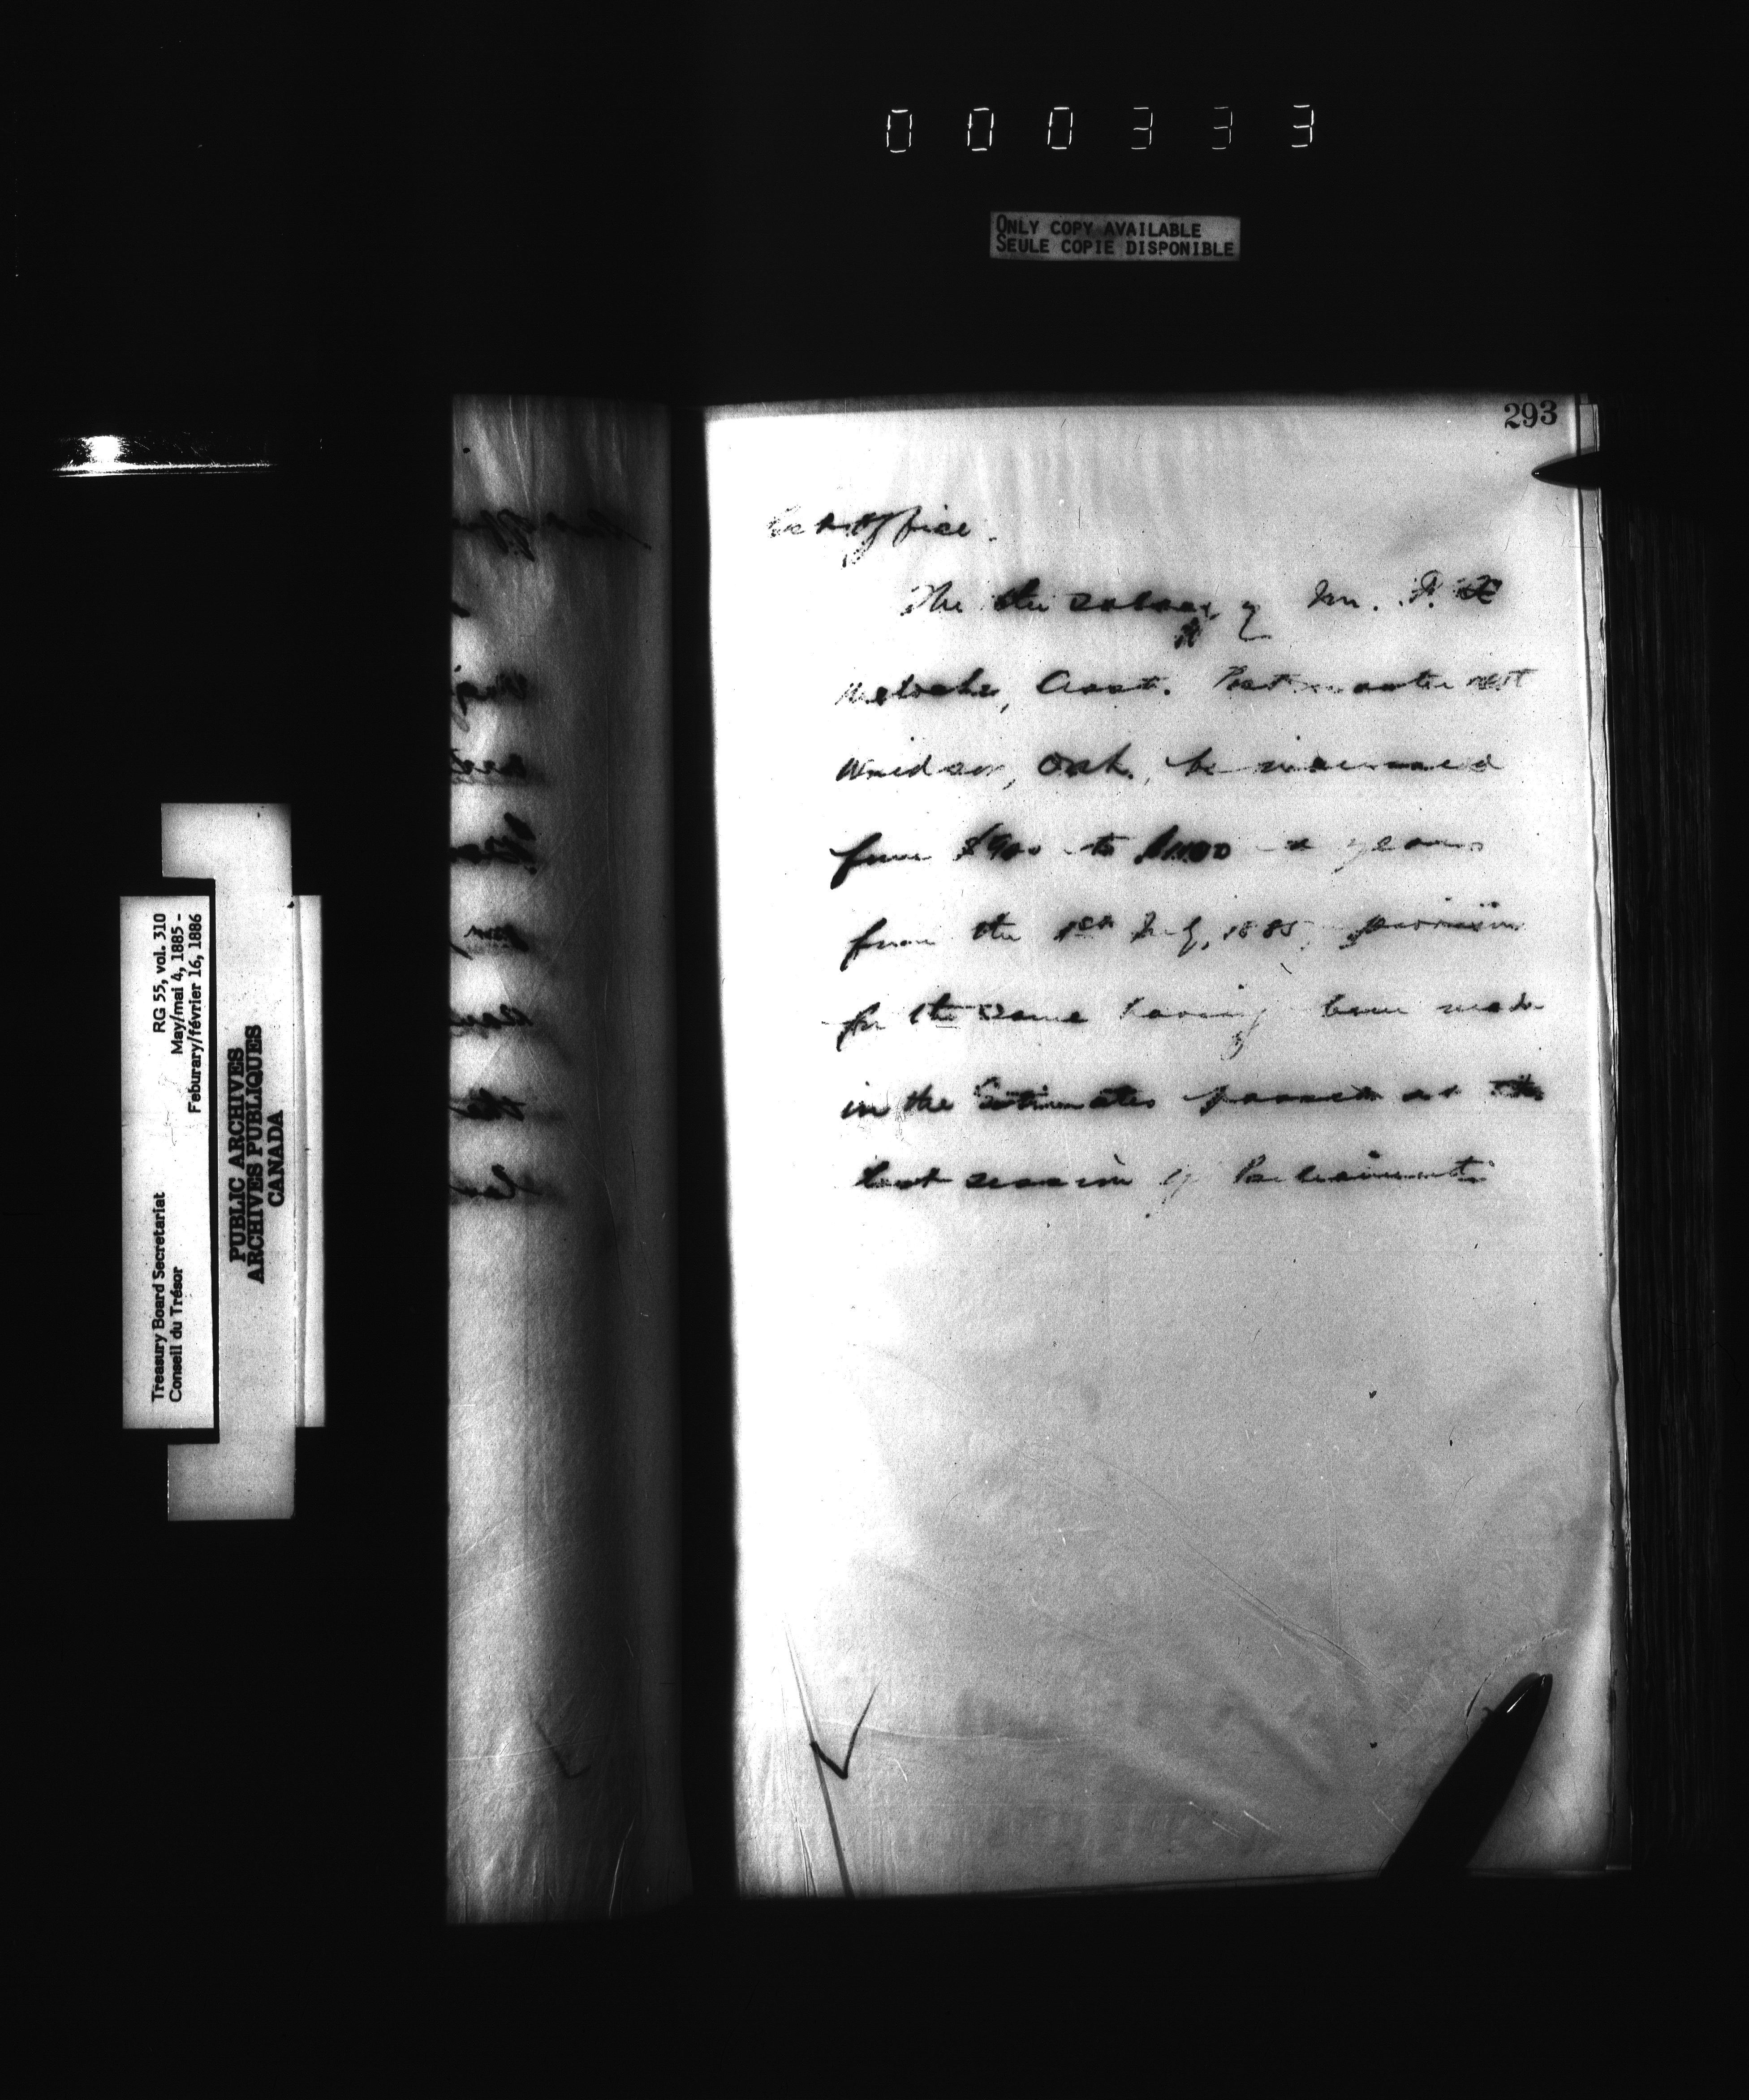 000333
ONLY COPY AVAILABLE
SEULE COPIE DISPONIBLE
293
Post Office.
The the salary of Mr. F.
Meloche, Asst. Postmaster at
Windsor, Ont., be increased
from $900 to $1100 a year
from the 1st July, 1885, provision
for the same having been made
in the Estimates passed at the
last session of Parliament
Treasury Board Secretariat RG 55, vol. 310
Conseil du Trésor May/mai 4, 1885 -
Feburary/février 16, 1886
PUBLIC ARCHIVES
ARCHIVES PUBLIQUES
CANADA